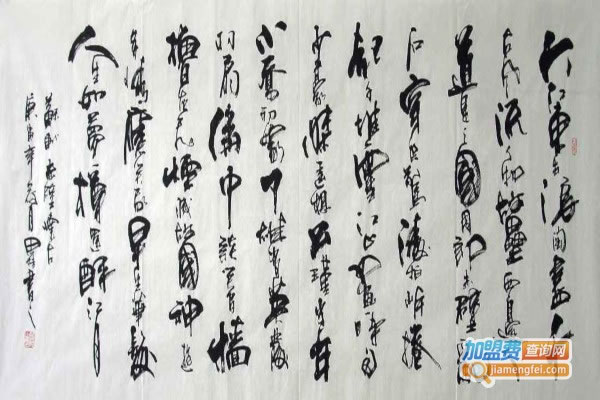 大江東去浪淘盡千
古風流人物故壘西邊人
道是三國周郎赤壁亂
石穿空驚濤拍岸捲
起千堆雪江山如畫一時多
少豪傑遙想公瑾當年
小喬初嫁了雄姿英發
羽扇綸巾談笑間檣
櫓灰飛煙滅故國神遊
多情應笑我早生華髮
人生如夢一樽還酹江月
蘇軾赤壁懷古
加盟费查询网
jiamengfei.com